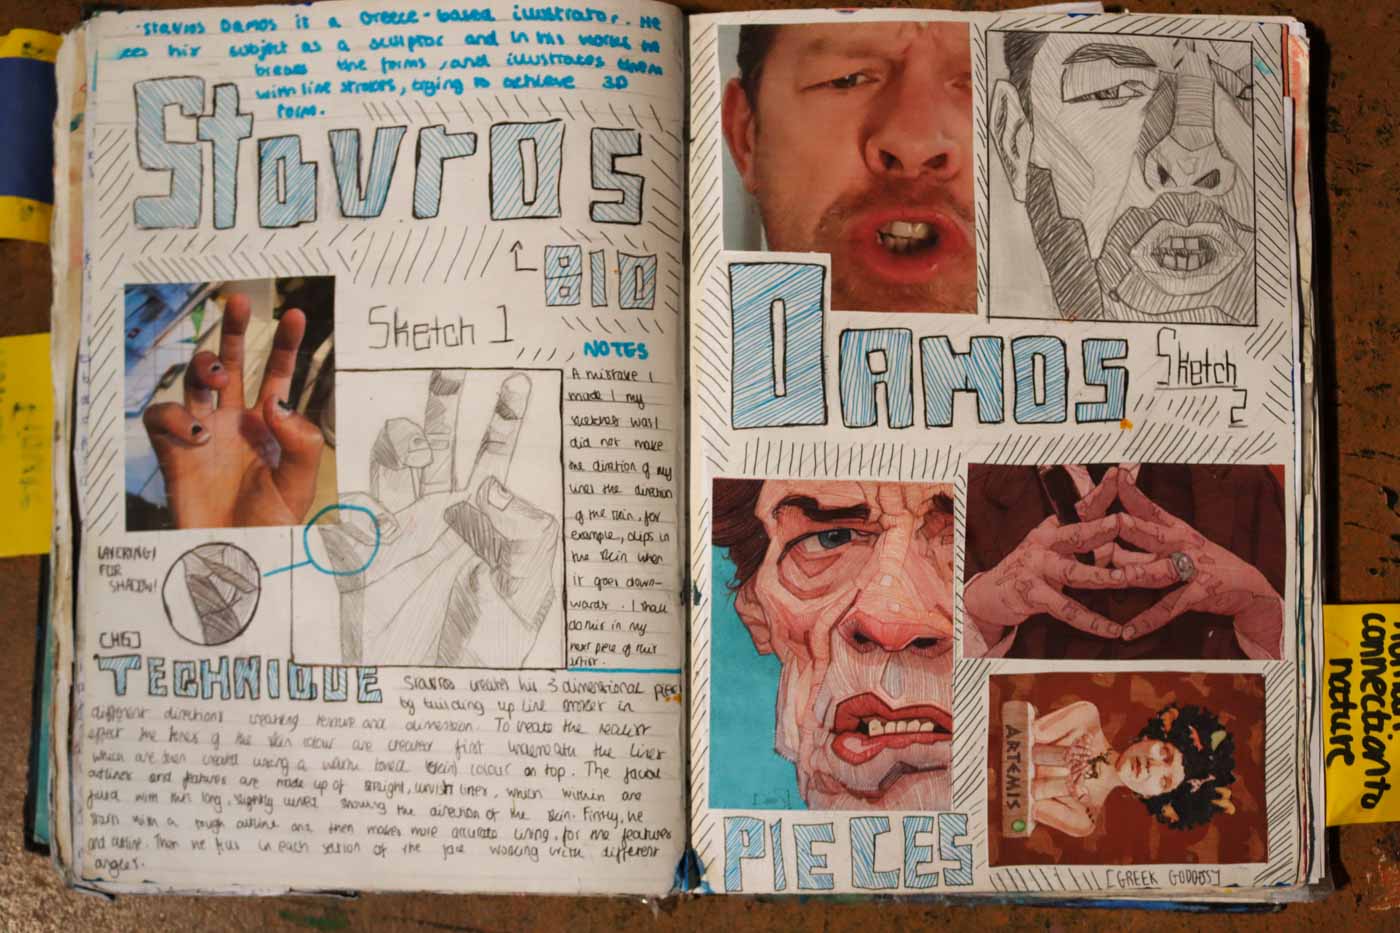 Stavros Damos is a Greece-based illustrator. He
sees his subject as a sculptor and in his works he
breaks the forms, and illustrates them
with line strokes, trying to achieve 3D
form.
Stavros
BIO
Sketch 1
NOTES
A mistake I
made I my
sketches was I
did not make
the diration of my
lines the direction
of the skin, for
example, dips in
the skin when
it goes down-
wards. I shall
do this in my
next piece of this
artist.
LAYERING!
FOR
SHADOW!
[HB]
TECHNIQUE
Stavros creates his 3 dimensional piece
by building up line strokes in
different directions creating texture and dimension. To create the realist
effect the tones of the skin colour are created first underneath the lines
which are then created using a warm toned (skin) colour on top. The facial
outlines and features are made up of straight, unvish lines, which within are
filled with thin long, slightly curved showing the direction of the skin. Firstly, he
starts with a rough outline and then makes more accurate lining, for the features
and outline. Then he fills in each section of the face working with different
angles.
DAMOS
Sketch
2
PIECES
ARTEMIS
[GREEK GODDESS]
connection to
nature